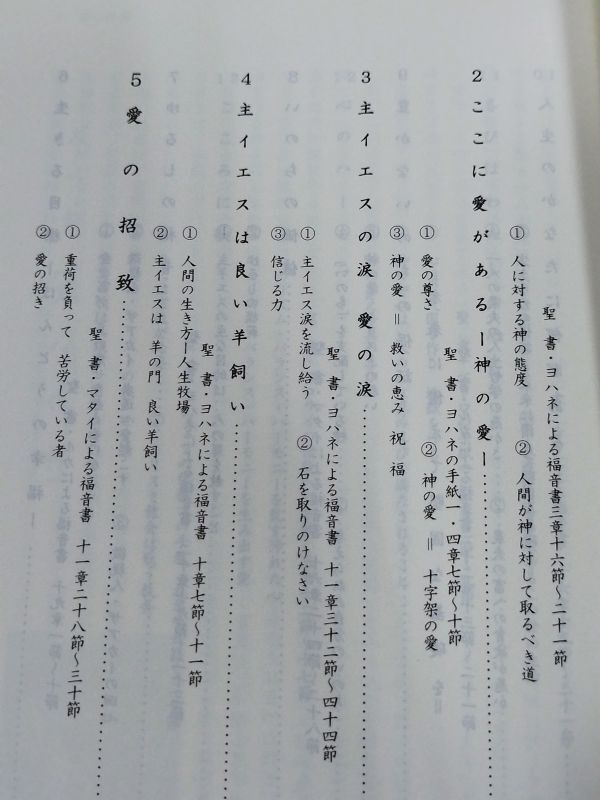 聖 書・ヨハネによる福音書三章十六節～二十一節
① 人に対する神の態度　② 人間が神に対して取るべき道
2 ここに愛がある ー神の愛ー…………
聖 書・ヨハネの手紙一・四章七節～十節
① 愛の尊さ　② 神の愛 ＝ 十字架の愛
③ 神の愛 ＝ 救いの恵み 祝 福
3 主イエスの涙 愛の涙…………
聖 書・ヨハネによる福音書 十一章三十二節～四十四節
① 主イエス涙を流し給う　② 石を取りのけなさい
③ 信じる力
4 主イエスは良い羊飼い…………
聖 書・ヨハネによる福音書 十章七節～十一節
① 人間の生き方ー人生牧場
② 主イエスは 羊の門 良い羊飼い
5 愛の招致…………
聖 書・マタイによる福音書 十一章二十八節～三十節
① 重荷を負って 苦労している者
② 愛の招き